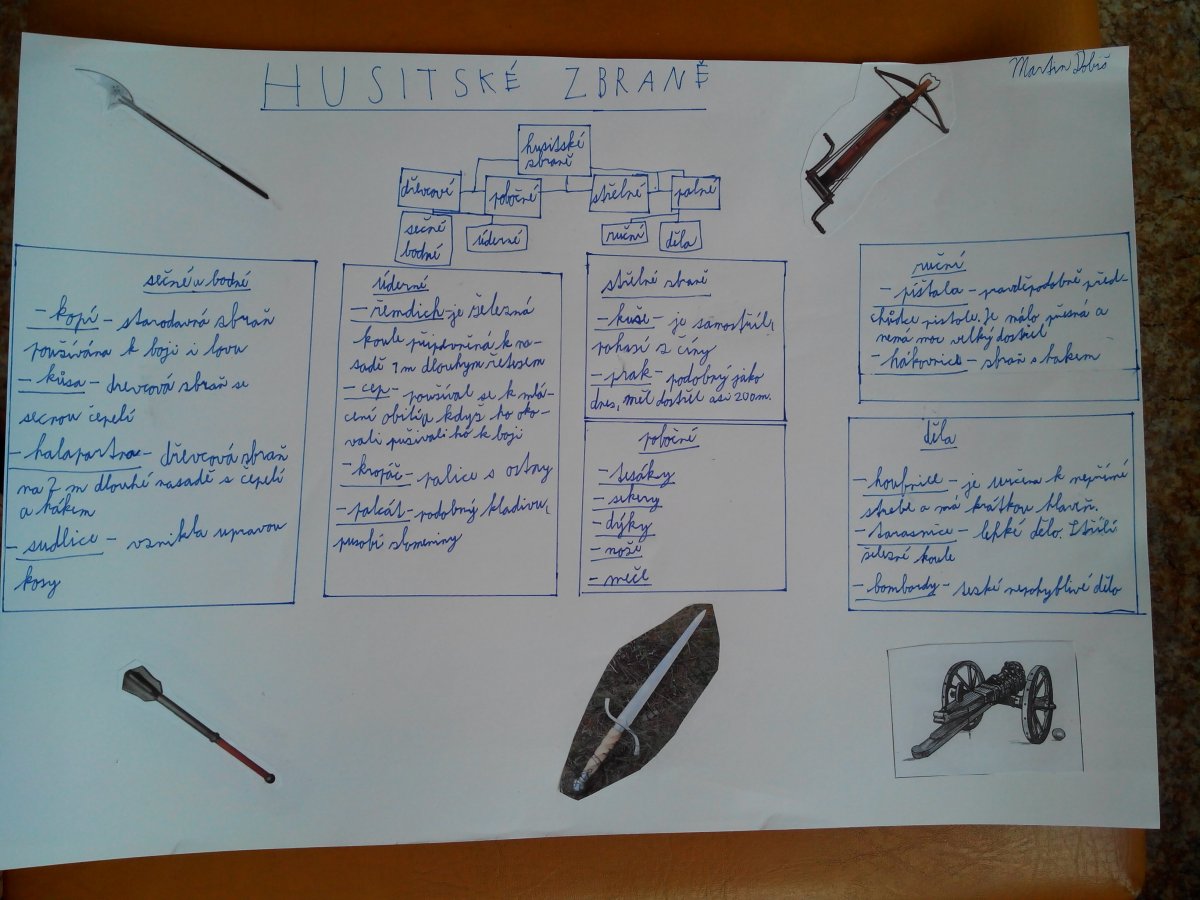 HUSITSKÉ ZBRANĚ
Martin Dobiš
husitské
zbraně
dřevcové
poboční
střelné
palné
sečné
bodní
úderné
ruční
děla
sečné a bodní
- kopí - starodavná zbraň
používána k boji i lovu
- kůsa - drevcová zbraň se
secnou čepelí
- halapartna - dřevcová zbraň
na 2 m dlouhé nasadě s čepelí
a hákem
- sudlice - vznikla upravou
kosy
úderné
- řemdich - je železná
koule připevniná k na-
sadě 1 m dlouhym řetezem
- cep - používal se k mlá-
cení obilí, když ho oko-
vali pužívali ho k boji
- kropáč - palice s ostny
- palcát - podobný kladivu,
pusobí zlomeniny
střelné zbraně
- kuše - je samostříl,
pohazí z číny
- prak - podobný jáko
dnes, měl dostřel asi 200m.
poboční
- tesáky
- sekery
- dýky
- nože
- meče
ruční
- píšťala - pravděpodobně před-
chůdce pistole. Je málo přesná a
nemá moc velký dostřel
- hákovnice - zbraň s hakem
děla
- houfnice - je určena k nepřímé
strelbě a má krátkou hlavěň.
- tarasnice - lehké dělo. Střílí
železné koule
- bombardy - teské nepohyblivé dělo